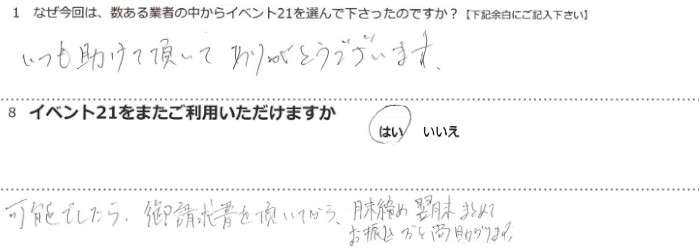 1 なぜ今回は、数ある業者の中からイベント21を選んで下さったのですか?【下記余白にご記入下さい】
いつも助けて頂いて ありがとうございます。
8 イベント21をまたご利用いただけますか
はい いいえ
可能でしたら、御請求書を頂いてから、月末締め 翌月末 まとめて
お振込 だと 尚助かります。